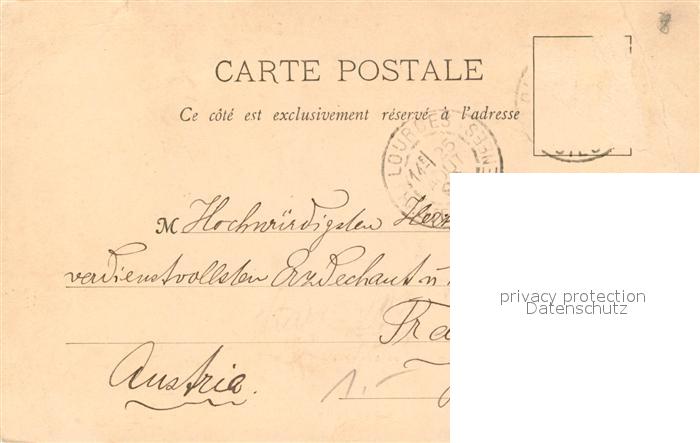 CARTE POSTALE
Ce côté est exclusivement réservé à l'adresse
LOURDES
25
AOUT
M Hochwürdigsten Herr
verdienstvollsten Erzdechant u
privacy protection
Datenschutz
Austria.
1.-